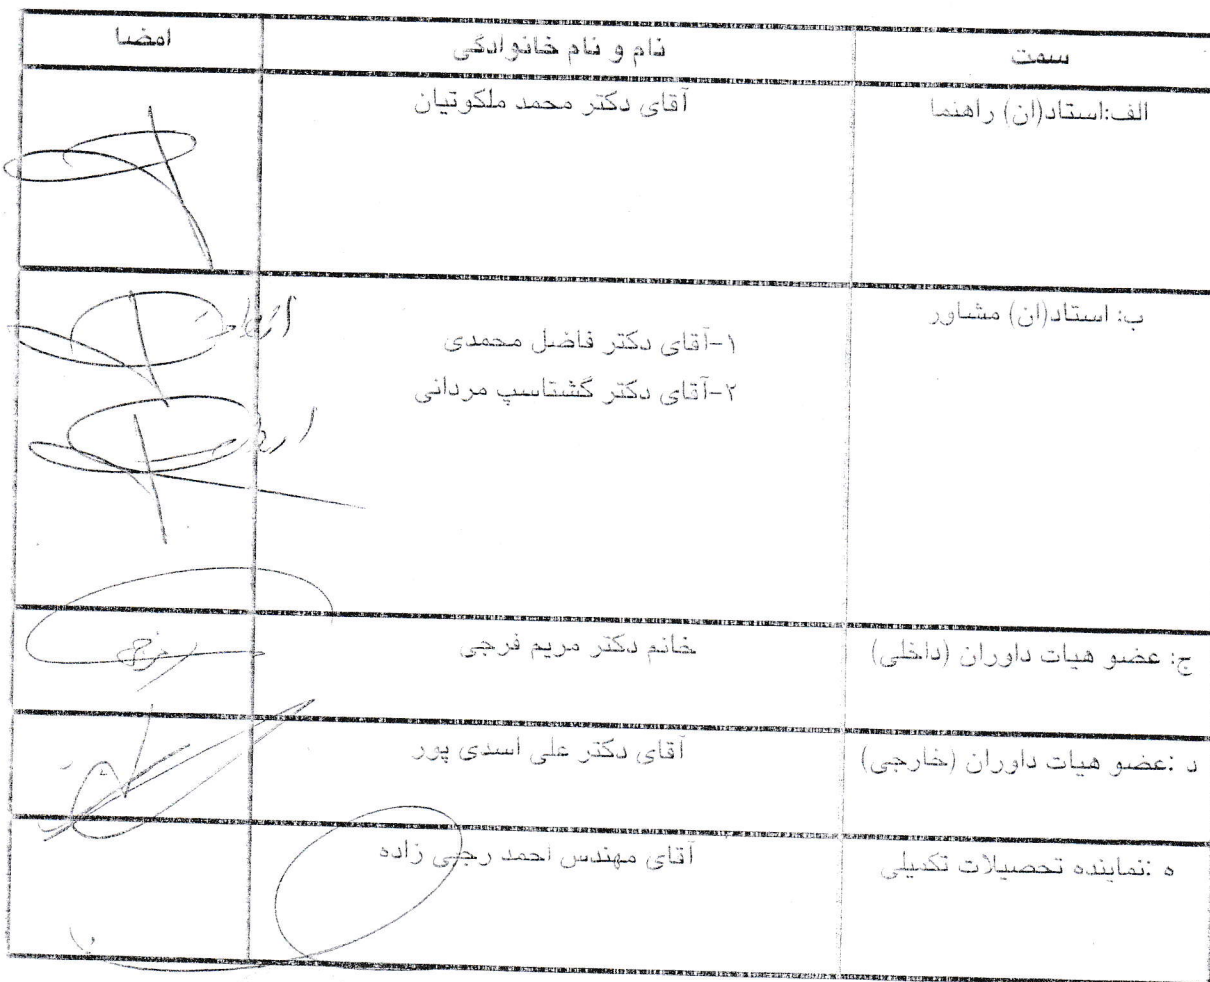 سمت نام و نام خانوادگی امضا
الف:استاد(ان) راهنما آقای دکتر محمد ملکوتیان
ب: استاد(ان) مشاور
۱-آقای دکتر فاضل محمدی
۲-آقای دکتر گشتاسپ مردانی
ج: عضو هیات داوران (داخلی) خانم دکتر مریم فرجی
د :عضو هیات داوران (خارجی) آقای دکتر علی اسدی پور
ه :نماینده تحصیلات تکمیلی آقای مهندس احمد رجبی زاده